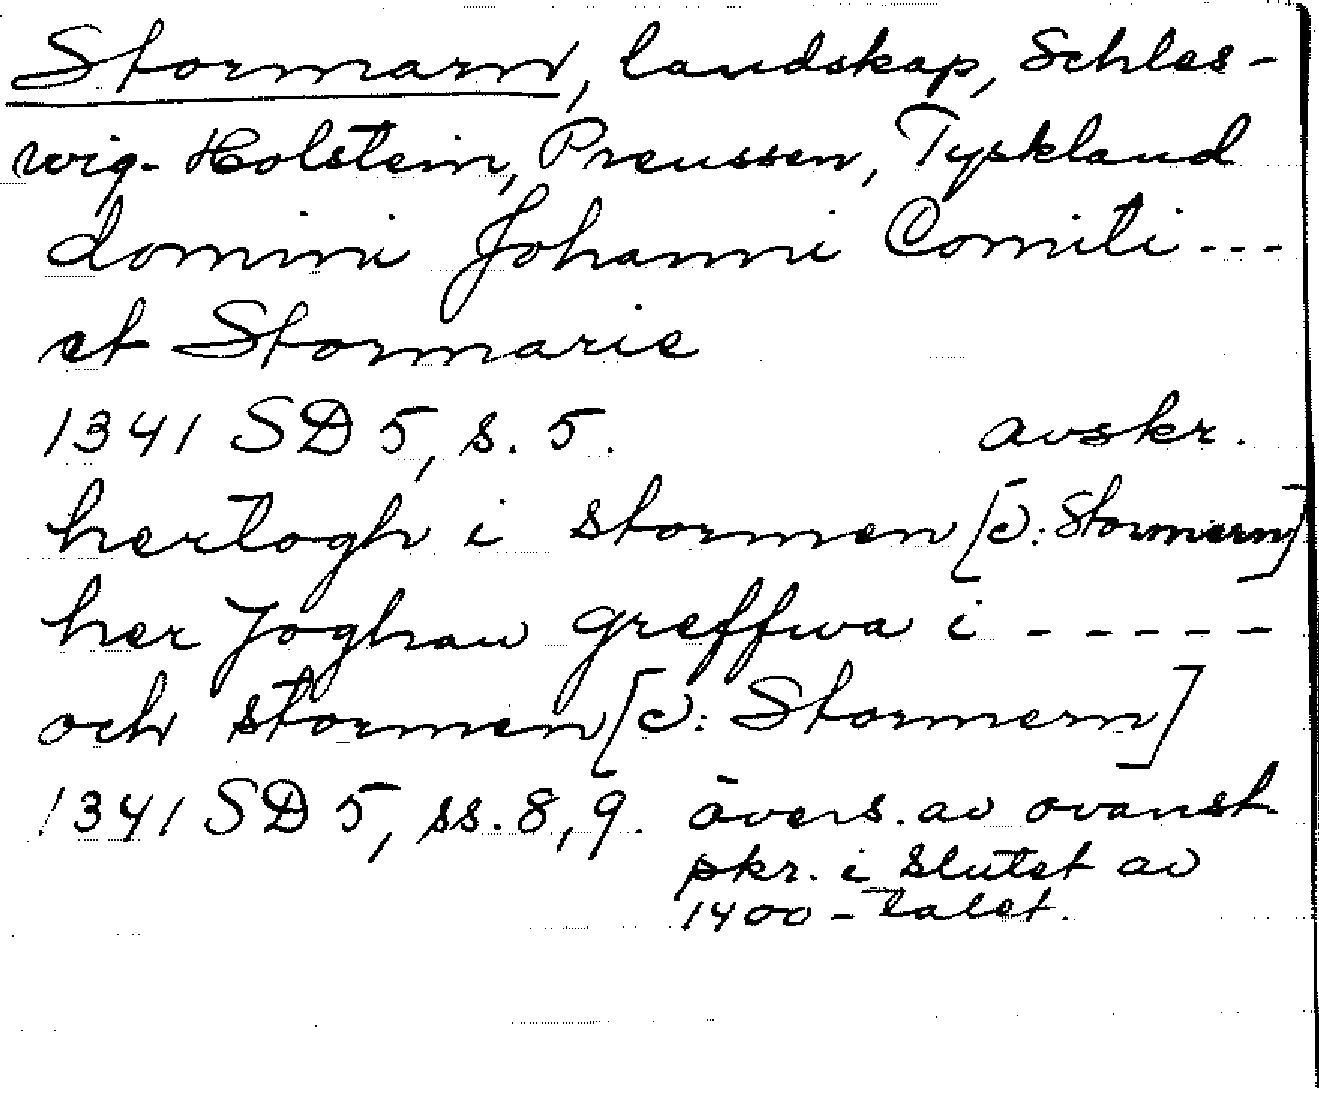 Stormarn, landskap, Schles-
wig-Holstein, Preussen, Tyskland
domini Johanni Comiti ---
et Stormarie
1341 SD 5, s. 5. avskr.
hertogh i stormen [ɔ: Stormern]
her Joghan greffwa i -----
och stormen [ɔ: Stormern]
1341 SD 5, ss. 8, 9. övers. av ovanst.
pkr. i slutet av
1400-talet.